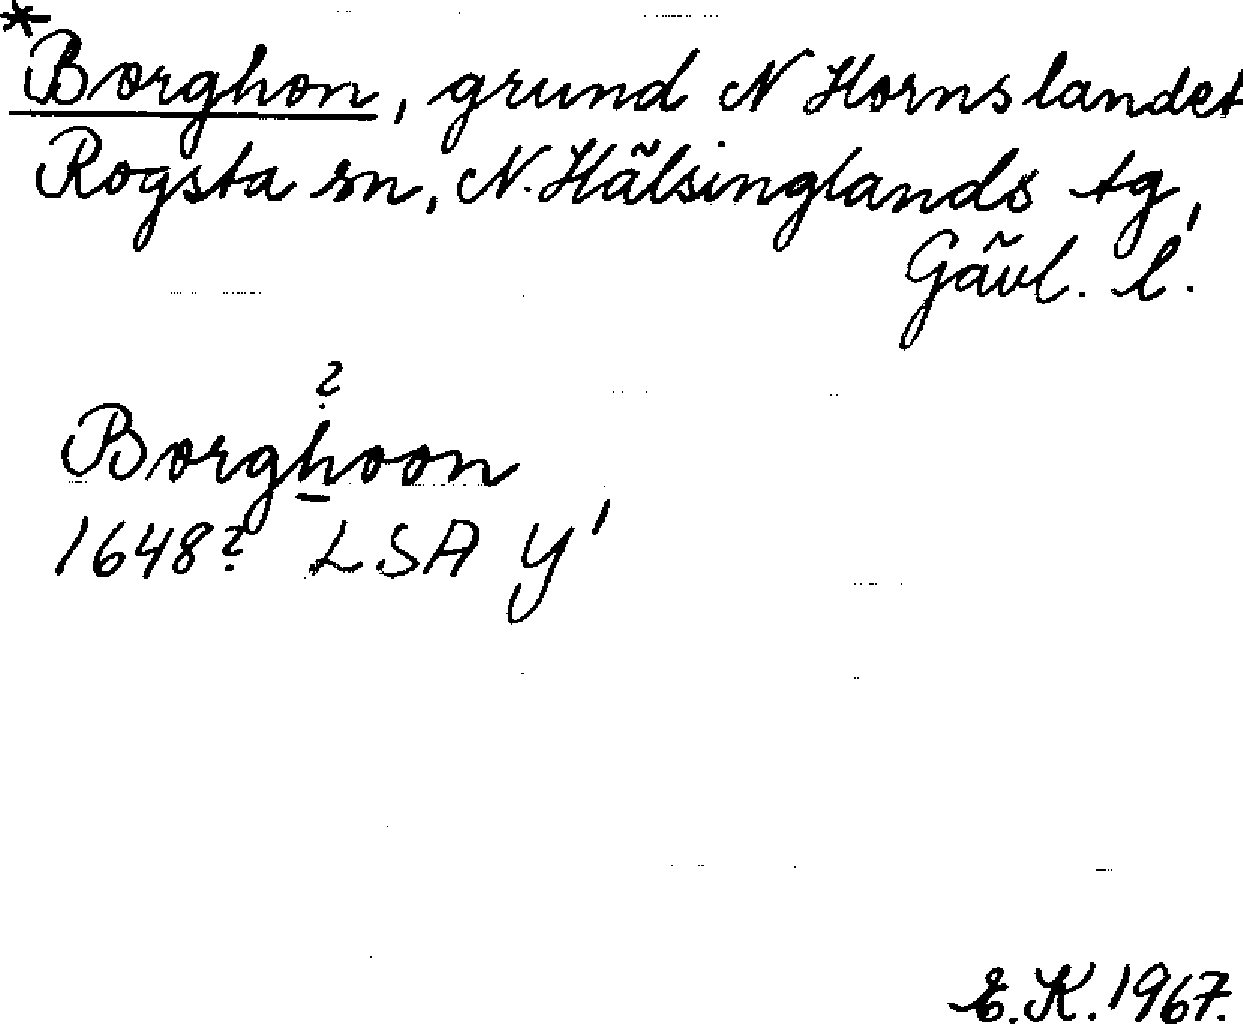 *Borghon, grund N Hornslandet
Rogsta sn, N. Hälsinglands tg,
Gävl. l.
?
Borghoon
1648? LSA Y'
E.K. 1967.